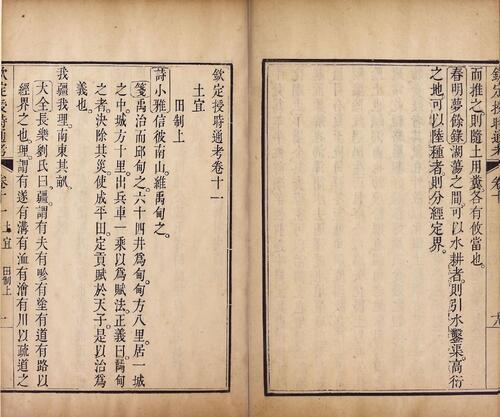 欽定授時通考
卷十
而推之則隨土用糞各有攸當也。
春明夢餘錄湖蕩之間。可以水耕者。則引水鑿渠。高衍
之地。可以陸種者。則分經定界。
欽定授時通考卷十一
土宜
田制上
詩小雅信彼南山。維禹甸之。
箋禹治而邱甸之。六十四井爲甸。甸方八里。居一城
之中。城方十里。出兵車一乘。以爲賦法。正義曰。禹甸
之者。決除其災。使成平田。定貢賦於天子。是以治爲
義也。
我疆我理。南東其畝。
大全長樂劉氏曰。疆謂有夫有畛有塗有道有路以
經界之也。理謂有遂有溝有洫有澮有川以疏道之
欽定授時通考
卷十一 土宜 田制上 一